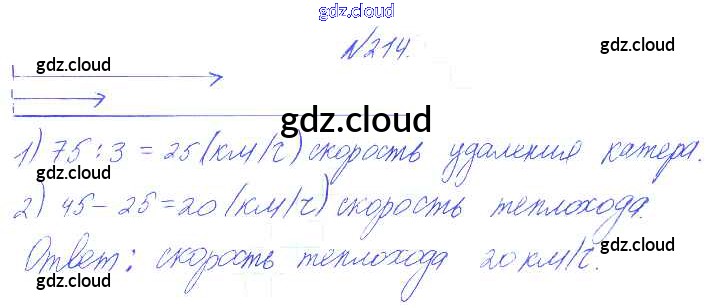 gdz.cloud
№214.
gdz.cloud
gdz.cloud
gdz.cloud
gdz.cloud
1) 75 : 3 = 25 (км/ч) скорость удаления катера.
gdz.cloud
gdz.cloud
2) 45 - 25 = 20 (км/ч) скорость теплохода.
gdz.cloud
gdz.cloud
Ответ: скорость теплохода 20 км/ч.
gdz.cloud